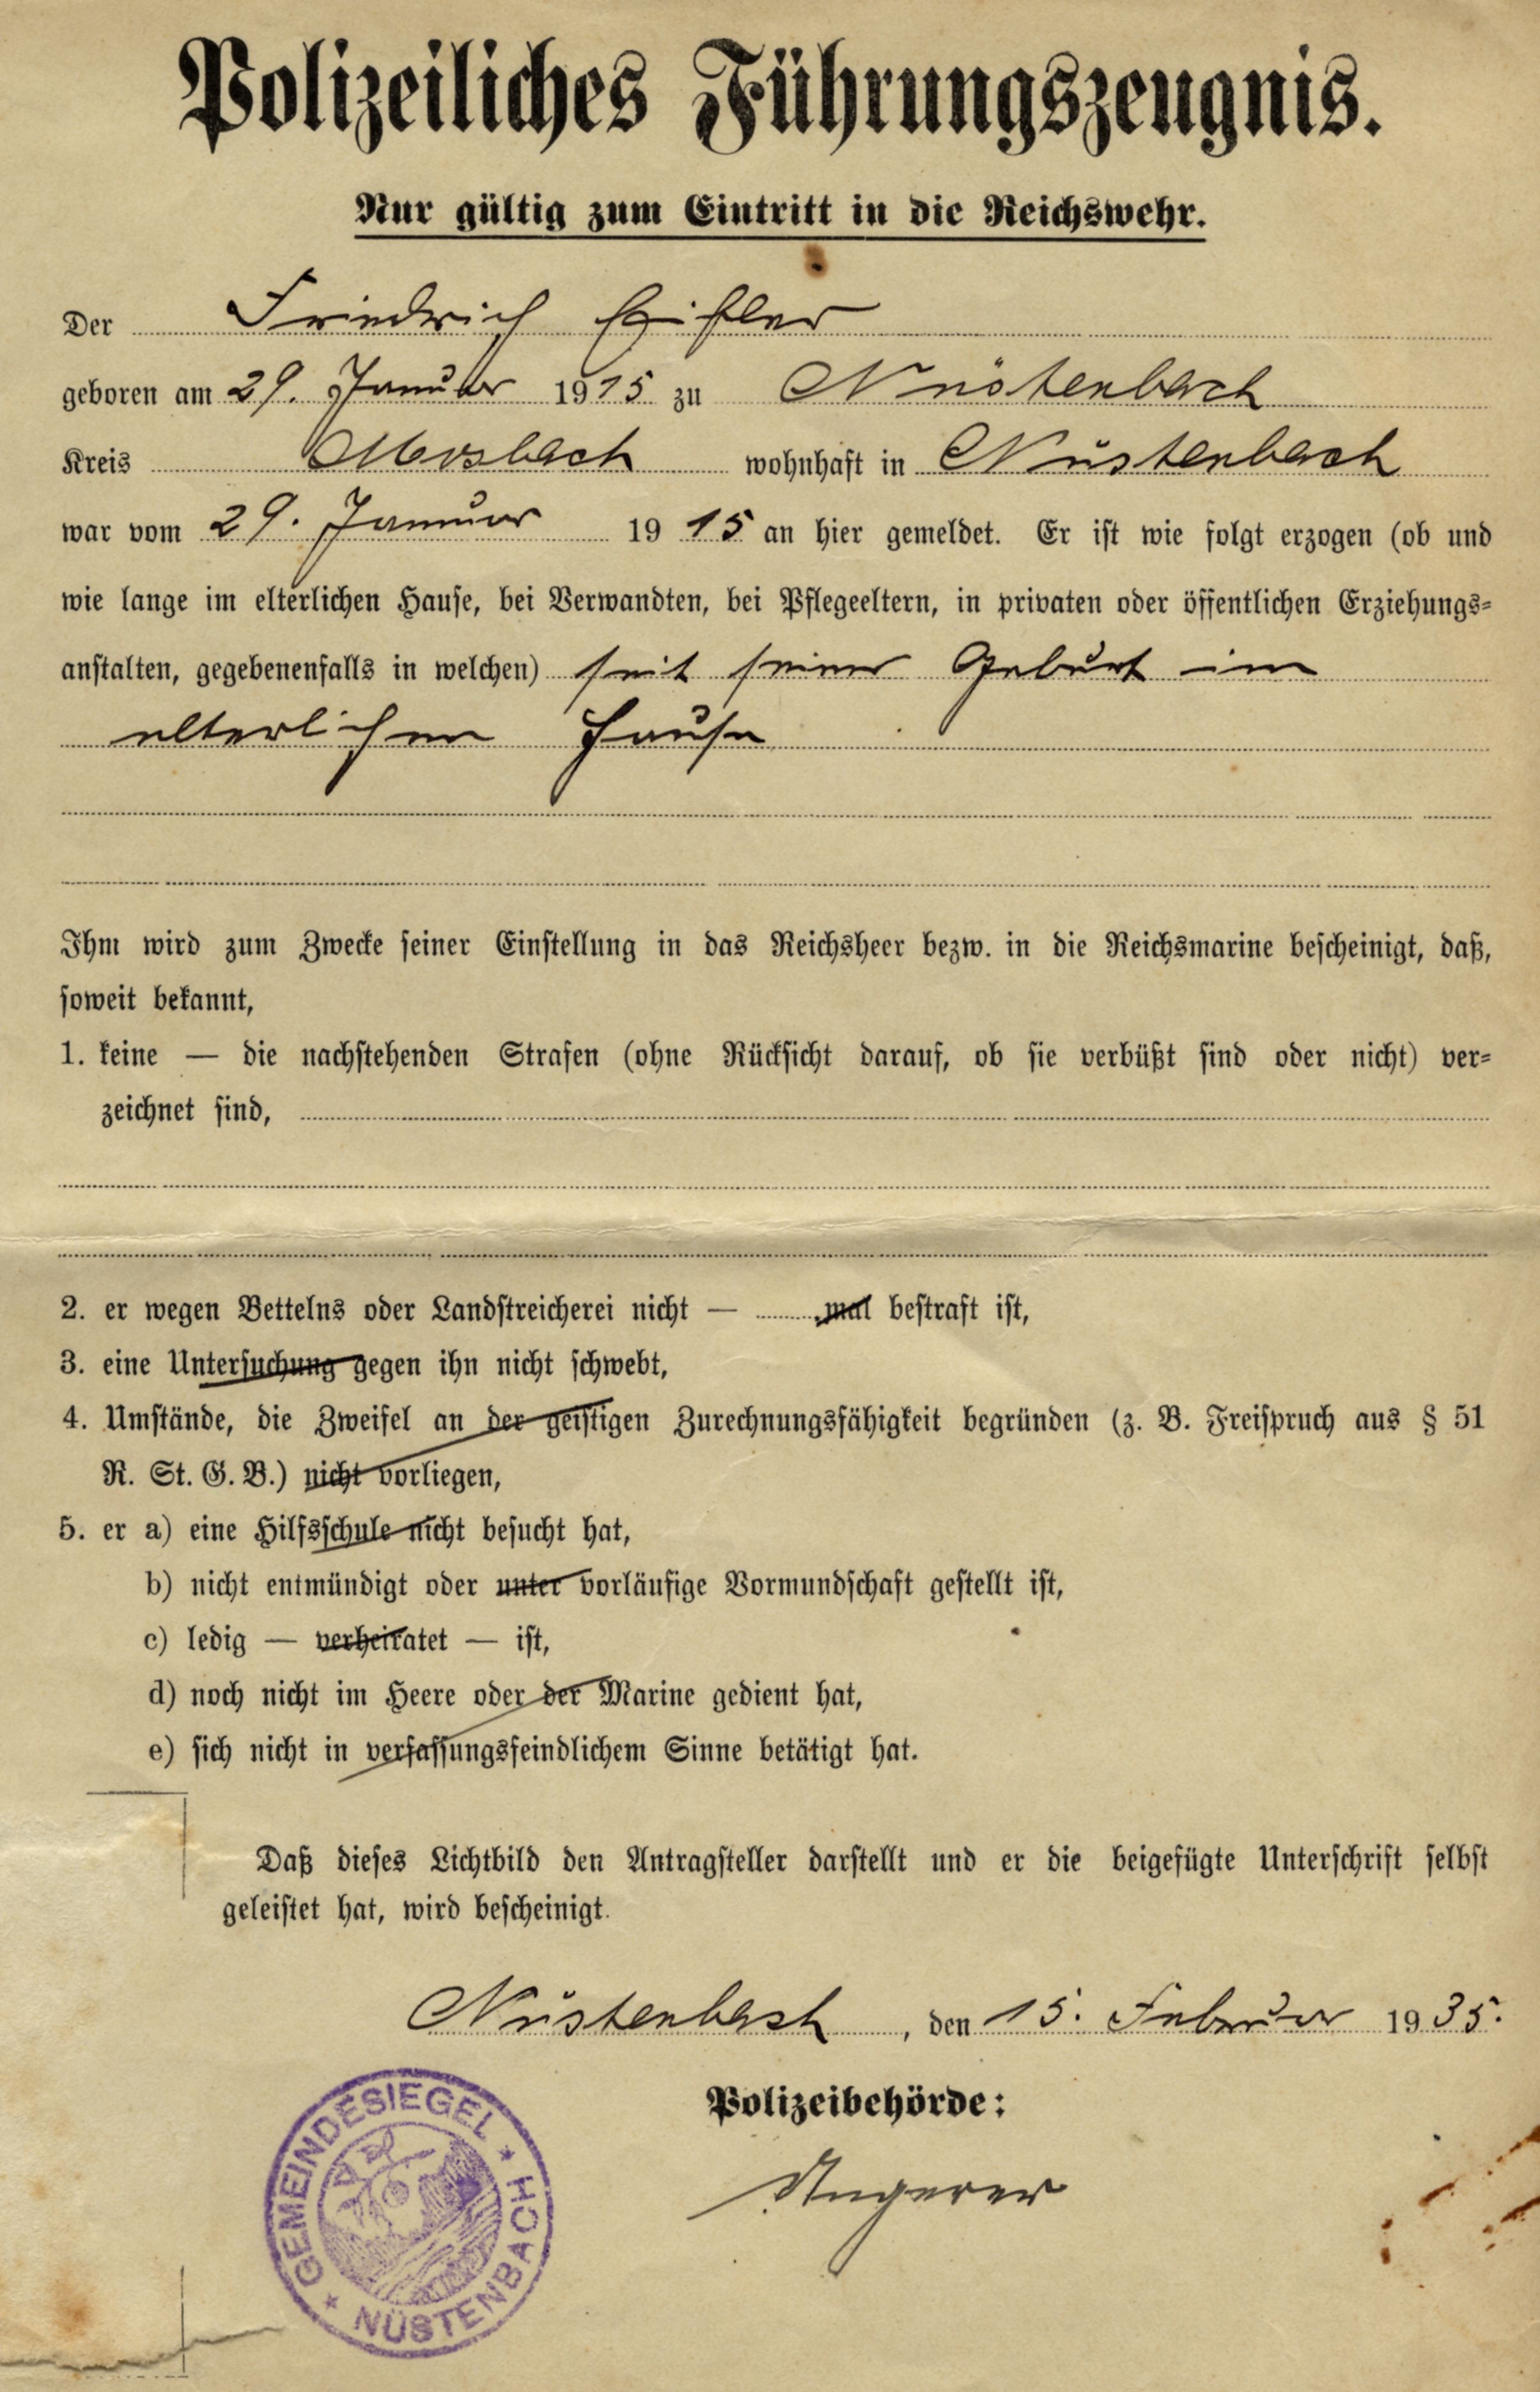 Polizeiliches Führungszeugnis.
Nur gültig zum Eintritt in die Reichswehr.
Der Friedrich
geboren am 29. Januar 1915 zu Nüstenbach
Kreis Mosbach wohnhaft in Nüstenbach
war vom 29. Januar 1915 an hier gemeldet. Er ist wie folgt erzogen (ob und
wie lange im elterlichen Hause, bei Verwandten, bei Pflegeeltern, in privaten oder öffentlichen Erziehungs-
anstalten, gegebenenfalls in welchen) seit seiner Geburt im
elterlichen Hause
Ihm wird zum Zwecke seiner Einstellung in das Reichsheer bezw. in die Reichsmarine bescheinigt, daß,
soweit bekannt,
1. keine — die nachstehenden Strafen (ohne Rücksicht darauf, ob sie verbüßt sind oder nicht) ver-
zeichnet sind,
2. er wegen Bettelns oder Landstreicherei nicht — mal bestraft ist,
3. eine Untersuchung gegen ihn nicht schwebt,
4. Umstände, die Zweifel an der geistigen Zurechnungsfähigkeit begründen (z. B. Freispruch aus § 51
R. St. G. B.) nicht vorliegen,
5. er a) eine Hilfsschule nicht besucht hat,
b) nicht entmündigt oder unter vorläufige Vormundschaft gestellt ist,
c) ledig — verheiratet — ist,
d) noch nicht im Heere oder der Marine gedient hat,
e) sich nicht in verfassungsfeindlichem Sinne betätigt hat.
Daß dieses Lichtbild den Antragsteller darstellt und er die beigefügte Unterschrift selbst
geleistet hat, wird bescheinigt.
Nüstenbach, den 15. Februar 1935.
Polizeibehörde:
Ungerer
GEMEINDESIEGEL * NÜSTENBACH *